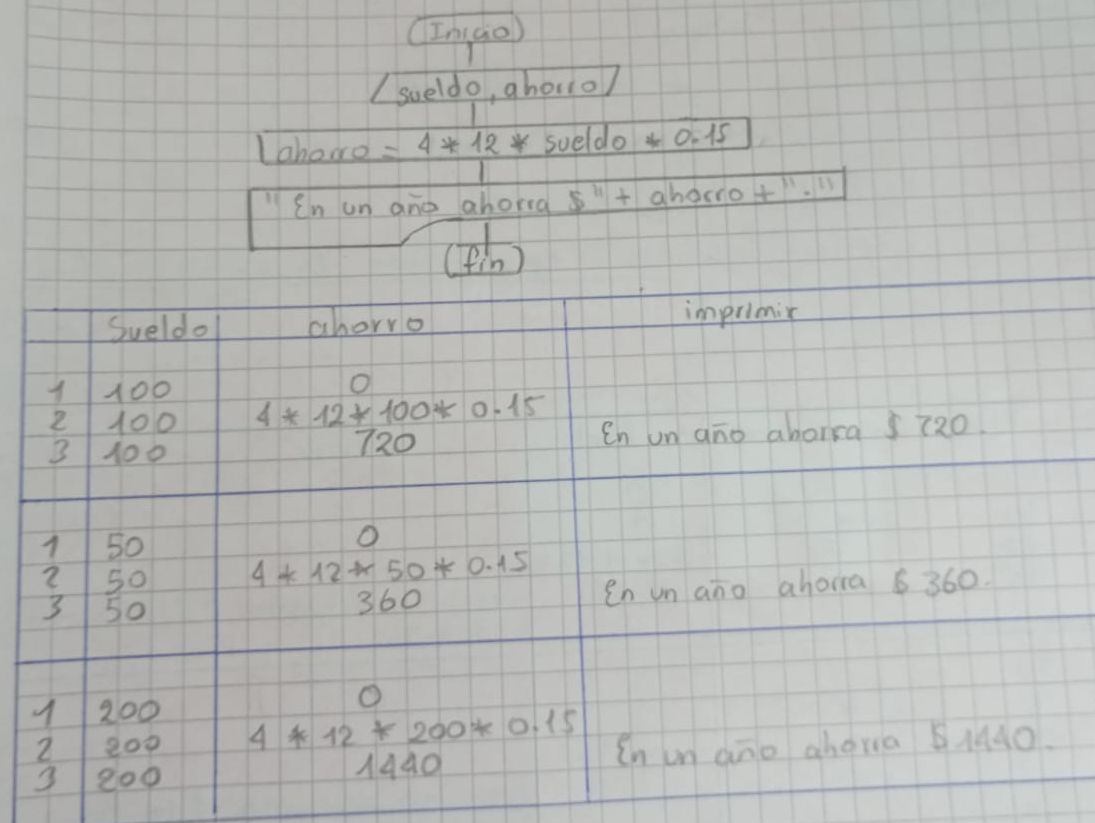 Inicio
sueldo, ahorro
ahorro = 4 * 12 * sueldo * 0.15
"En un año ahorra $" + ahorro + "."
fin
Sueldo ahorro imprimir
1 100 0
2 100 4 * 12 * 100 * 0.15
3 100 720 En un año ahorra $ 720.
1 50 0
2 50 4 * 12 * 50 * 0.15
3 50 360 En un año ahorra $ 360.
1 200 0
2 200 4 * 12 * 200 * 0.15
3 200 1440 En un año ahorra $ 1440.